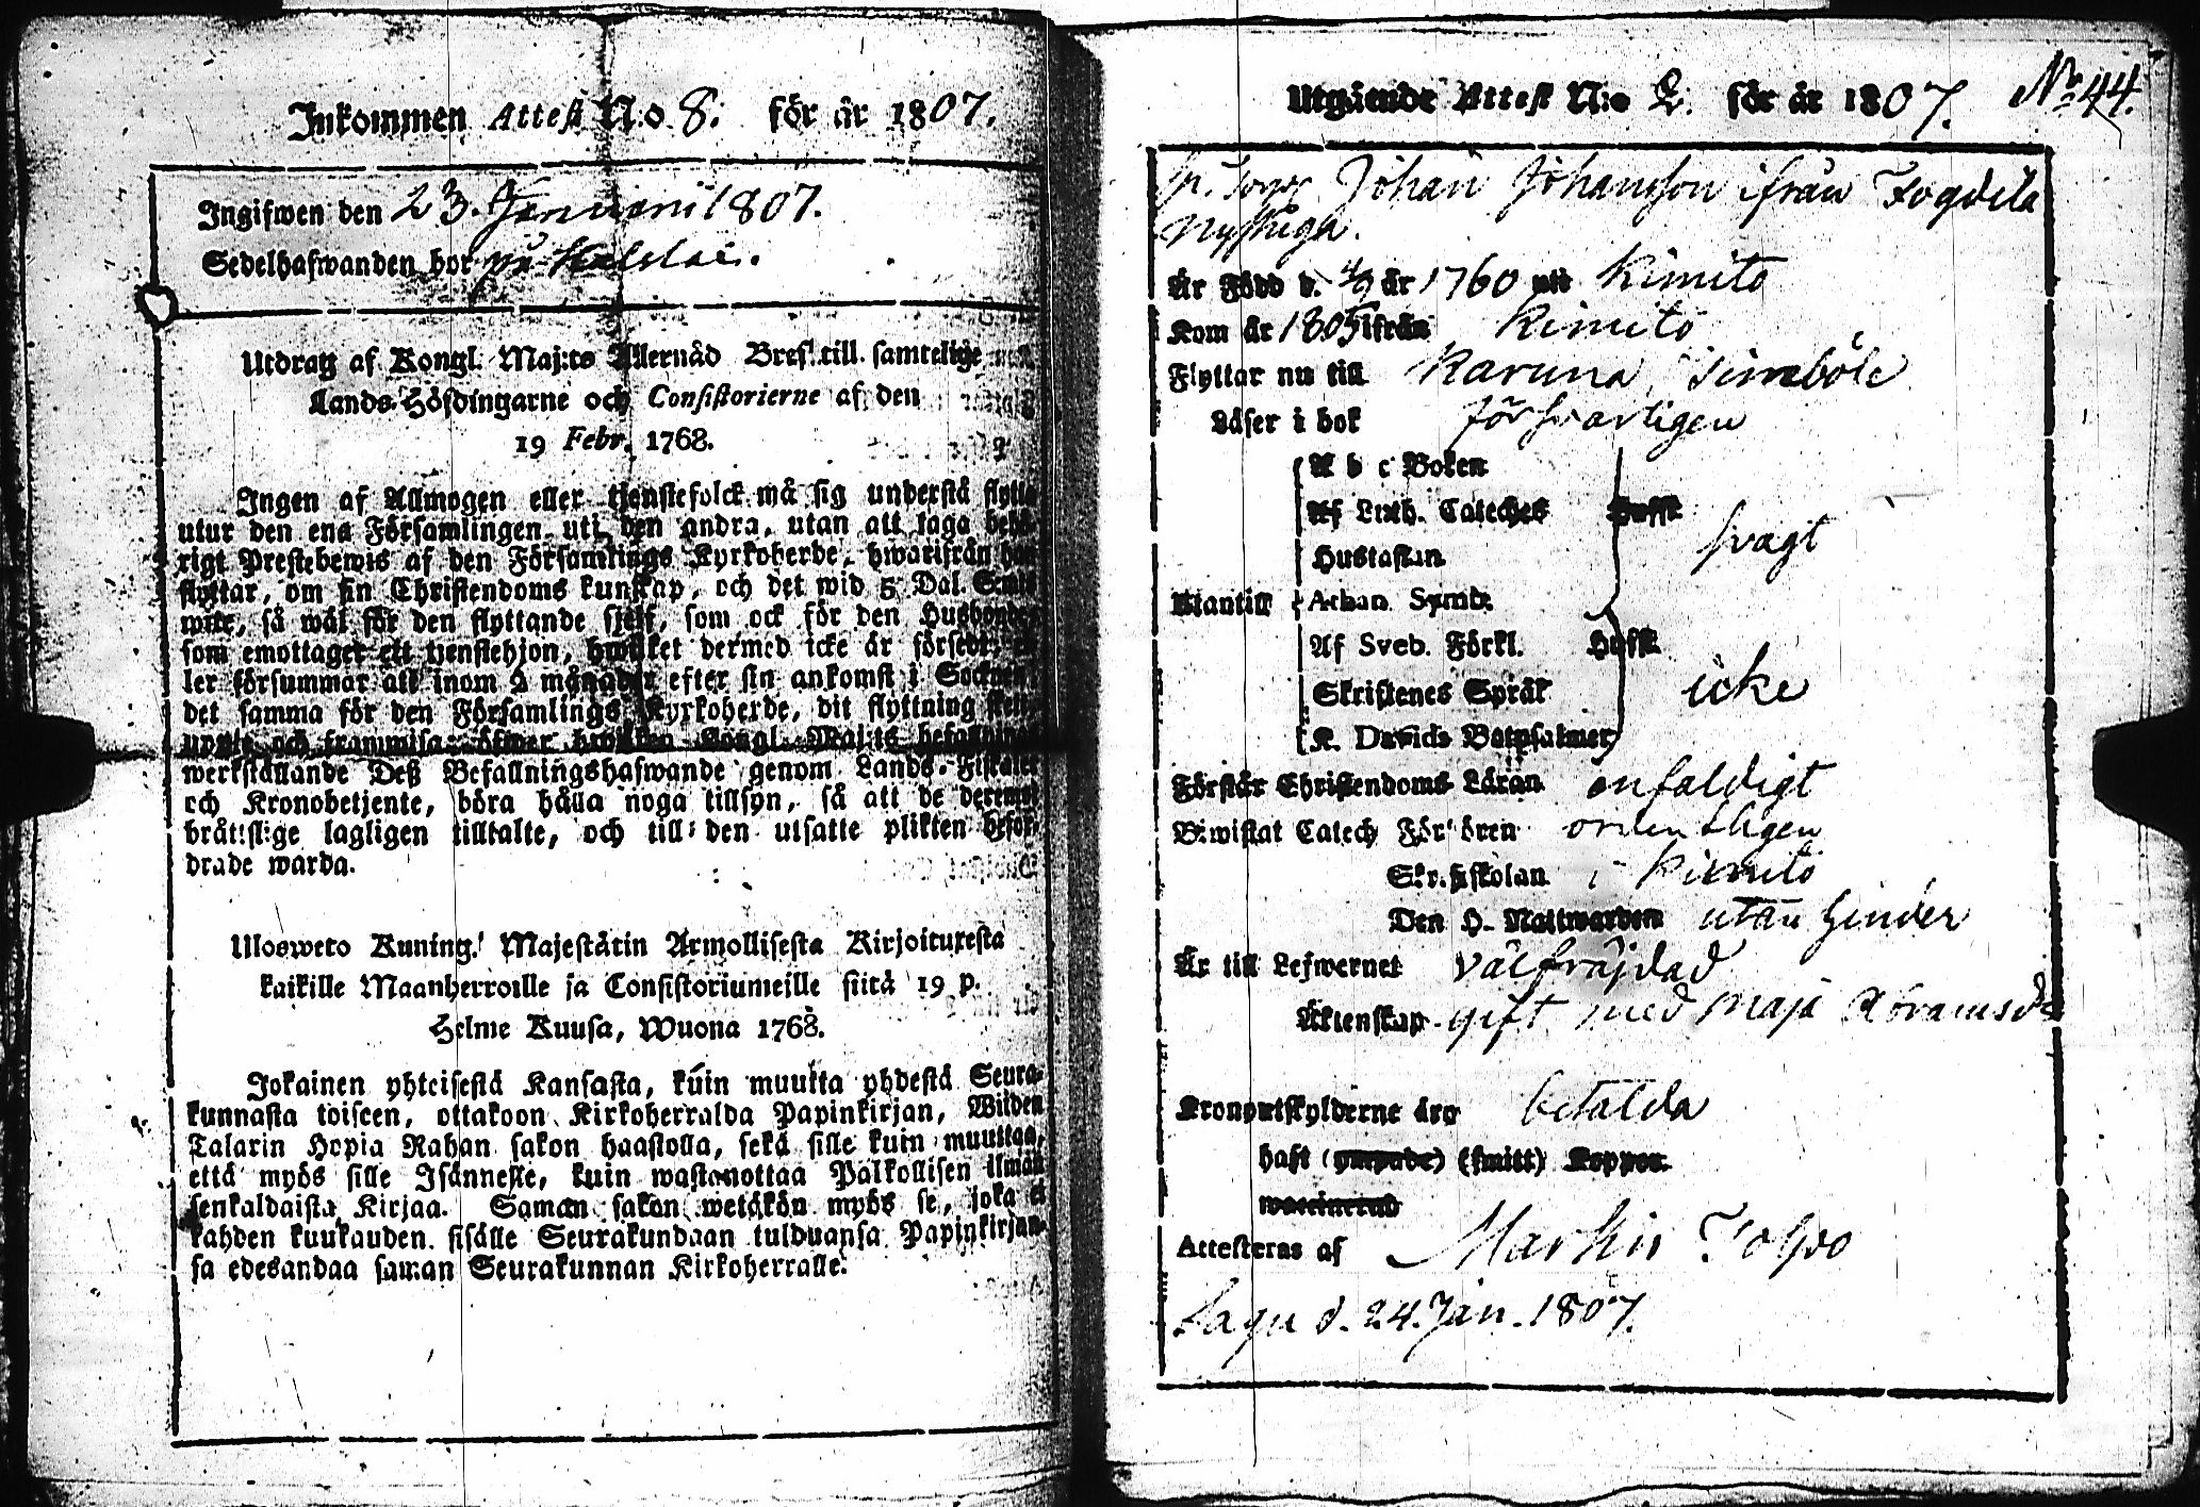 Inkommen Attest N:o 8. för år 1807.
Ingifwen den 23. Januari 1807.
Sedelhafwanden bor på
Utdrag af Kongl. Maj:ts Allernåd Bref till samtelige
Lands-Höfdingarne och Consistorierne af den
19 Febr. 1768.
Ingen af Allmogen eller tjenstefolck må sig understå flytta
utur den ena Församlingen uti den andra, utan att taga behö-
rigt Prestebewis af den Församlings Kyrkoherde, hwarifrån han
flyttar, om sin Christendoms kunskap, och det wid 5 Dal. Smts
wite, så wäl för den flyttande sjelf, som ock för den Husbonde,
som emottager ett tjenstehjon, hwilket dermed icke är försedt, el-
ler försummar att inom 2 månader efter sin ankomst i Socknen,
det samma för den Församlings Kyrkoherde, dit flyttning skett,
upgte och framwisa; öfwer hwilken Kongl. Maj:ts befallning
werkställande Deß Befallningshafwande genom Lands-Fiskaler
och Kronobetjente, böra hålla noga tillsyn, så att de deremot
bråttslige lagligen tilltalte, och till den utsatte plikten befor-
drade warda.
Ulosweto Kuning. Majestätin Armollisesta Kirjoituxesta
kaikille Maanherroille ja Consistoriumeille siitä 19 p.
Helme Kuusa, Wuona 1768.
Jokainen yhteisestä Kansasta, kuin muutta yhdestä Seura-
kunnasta toiseen, ottakoon Kirkoherralda Papinkirjan, Wiiden
Talarin Hopia Rahan sakon haastolla, sekä sille kuin muuttaa,
että myös sille Isännelle, kuin wastanottaa Palkollisen ilman
senkaldaista Kirjaa. Saman sakon wetäkön myös se, joka ei
kahden kuukauden sisälle Seurakundaan tulduansa Papinkirjan-
sa edesandaa saman Seurakunnan Kirkoherralle.
Utgående Attest N:o 2. för år 1807. No 44.
Johan Johansson ifrån Fogdila
Nystuga.
Är Född d. 4/9 år 1760 uti Kimito
Kom år 1805 ifrån Kimito
Flyttar nu till Karuna, Simböle
Läser i bok försvarligen
A b c Boken
Af Luth. Cateches Husst. svagt
Hustaflan
Utantill Athan. Symb.
Af Sveb. Förkl. Husst.
Skriftenes Språk icke
K. Davids Botpsalmer
Förstår Christendoms Läran enfaldigt
Biwistat Catech. Förhören ordentligen
Skriftskolan i Kimito
Den H. Nattwarden utan hinder
Är till Lefwernet välfräjdad
Äktenskap gift med Maja Abramsdr
Kronoutskylderne äro betalda
haft (ympade) (smitt) Koppor.
waccinerad
Attesteras af
Sagu d. 24. Jan. 1807.